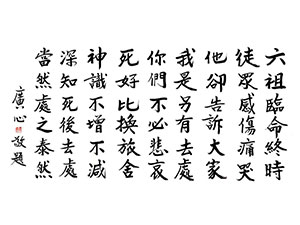 六祖臨命終時
徒眾感傷痛哭
他卻告訴大家
我是另有去處
你們不必悲哀
死好比換旅舍
神識不增不減
深知死後去處
當然處之泰然
廣心敬題